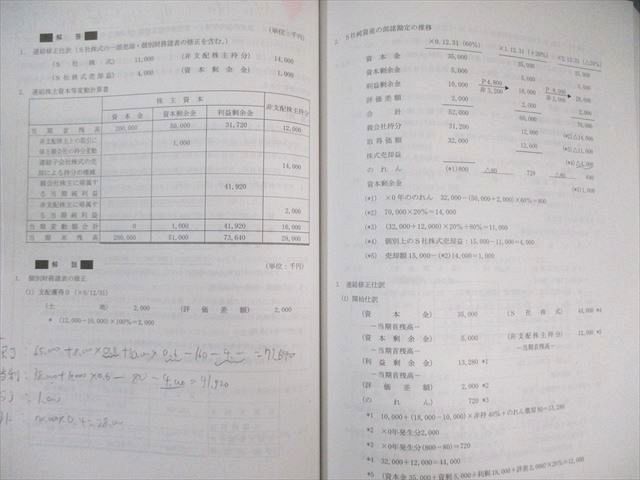 解 答
(単位：千円)
1. 連結修正仕訳（S社株式の一部売却・個別財務諸表の修正を含む。）
(S 社 株 式) 11,000 (非支配株主持分) 14,000
(S社株式売却益) 4,000 (資 本 剰 余 金) 1,000
2. 連結株主資本等変動計算書
株 主 資 本
非支配株主持分
資 本 金 資本剰余金 利益剰余金
当 期 首 残 高 200,000 50,000 31,720 12,000
非支配株主との取引に
係る親会社の持分変動 1,000
連結子会社株式の売
却による持分の増減 14,000
親会社株主に帰属す
る当期純利益 41,920
非支配株主に帰属す
る当期純利益 2,000
当 期 変 動 額 合 計 0 1,000 41,920 16,000
当 期 末 残 高 200,000 51,000 73,640 28,000
解 説
(単位：千円)
1. 個別財務諸表の修正
(1) 支配獲得日（×0/12/31）
(土 地) 2,000 (評 価 差 額) 2,000
* (12,000-10,000)×100%=2,000
2. S社純資産の部諸勘定の推移
×0.12.31 (60%) ×1.12.31 (+20%) ×2.12.31 (△20%)
資 本 金 35,000 35,000 35,000
資本剰余金 5,000 5,000 5,000
利益剰余金 10,000 P4,800 非3,200 18,000 P 8,000 非2,000 28,000
評 価 差 額 2,000 2,000 2,000
合 計 52,000 60,000 70,000
親会社持分 31,200 12,000 (*2)△14,000
取 得 価 額 32,000 12,000 (*3)△11,000
株式売却益 (*4)△4,000
の れ ん (*1)800 △80 720 △80 640
資本剰余金 (*5)1,000
(*1) ×0年ののれん 32,000-(50,000+2,000)×60%=800
(*2) 70,000×20%=14,000
(*3) (32,000+12,000)×20%÷80%=11,000
(*4) 個別上のS社株式売却益：15,000-11,000=4,000
(*5) 売却額15,000-(*2)14,000=1,000
3. 連結修正仕訳
(1) 開始仕訳
(資 本 金) 35,000 (S 社 株 式) 44,000 *4
－当期首残高－ (非支配株主持分) 12,000 *5
(資 本 剰 余 金) 5,000 －当期首残高－
－当期首残高－
(利 益 剰 余 金) 13,280 *1
－当期首残高－
(評 価 差 額) 2,000 *2
(の れ ん) 720 *3
*1 10,000+(18,000-10,000)×非持40%+のれん償却80=13,280
*2 ×0年発生分2,000
*3 ×0年発生分(800-80)=720
*4 32,000+12,000=44,000
*5 (資本金35,000+資剰5,000+利剰18,000+評差2,000)×20%=12,000